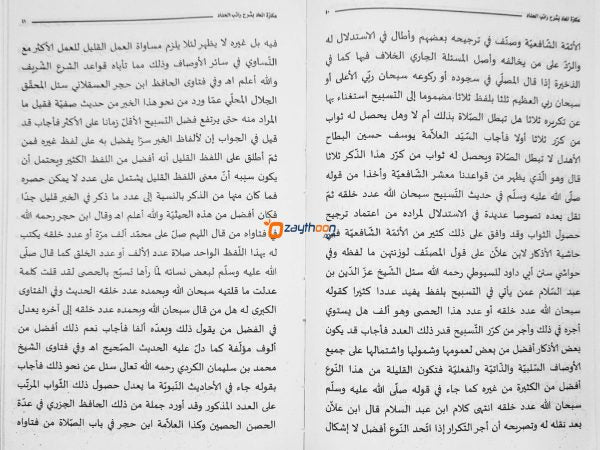 مكارم العاد بشرح راتب الحداد
٤٠
الأئمّة الشافعيّة وصنّف في ترجيحه بعضهم وأطال في الاستدلال له
والرّدّ على من يخالفه وأصل المسئلة الجاري الخلاف فيها كما في
الذخيرة إذا قال المصلّي في سجوده أو ركوعه سبحان ربّي الأعلى أو
سبحان ربي العظيم ثلثا بلفظ ثلاثا مضموما إلى التسبيح استغناء بها
عن تكريره ثلاثا هل تبطل الصّلاة بذلك أم لا وهل يحصل له ثواب
من كرّر ثلاثا أولا فأجاب السّيّد العلاّمة يوسف حسين البطاح
الأهدل لا تبطل الصّلاة ويحصل له ثواب من كرّر هذا الذّكر ثلاثا
قال وهو الّذي يظهر من قواعدنا معشر الشّافعيّة وأخذا من قوله
صلّى الله عليه وسلّم في حديث التّسبيح سبحان الله عدد خلقه ثمّ
نقل بعده نصوصا عديدة في الاستدلال لمراده من اعتماد ترجيح
حصول الثّواب وقد وافق على ذلك كثير من الأئمّة الشّافعيّة ففي
حاشية الأذكار لابن علاّن على قول المصنّف لوزنتهن ما لفظه وفي
حواشي سنن أبي داود للسيوطي رحمه الله سئل الشّيخ عزّ الدّين بن
عبد السّلام عمن يأتي في التّسبيح بلفظ يفيد عددا كثيرا كقوله
سبحان الله عدد خلقه أو عدد هذا الحصى وهو ألف هل يستوي
أجره في ذلك وأجر من كرّر التّسبيح قدر ذلك العدد فأجاب قد يكون
بعض الأذكار أفضل من بعض لعمومها وشمولها واشتمالها على جميع
الأوصاف السّلبيّة والذّاتيّة والفعليّة فتكون القليلة من هذا النّوع
أفضل من الكثيرة من غيره كما جاء في قوله صلّى الله عليه وسلّم
سبحان الله عدد خلقه انتهى كلام ابن عبد السلام قال ابن علاّن
بعد نقله له وتصريحه أن أجر التّكرار إذا اتّحد النّوع أفضل لا إشكال
٤١
فيه بل غيره لا يظهر لئلا يلزم مساواة العمل القليل للعمل الأكثر مع
التّساوي في سائر الأوصاف وذلك مما تأباه قواعد الشرع الشّريف
والله أعلم اهـ وفي فتاوى الحافظ ابن حجر العسقلاني سئل المحقّق
الجلال المحلّي عمّا ورد من نحو هذا الخبر من حديث صفيّة فقيل ما
المراد منه حتى يرتفع فضل التسبيح الأقلّ زمانا على الأكثر فأجاب قد
قيل في الجواب إن لألفاظ الخبر سرّا يفضل به على لفظ غيره فمن
ثمّ أطلق على اللفظ القليل أنه أفضل من اللفظ الكثير ويحتمل أن
يكون سببه أنّ معنى اللفظ القليل يشتمل على عدد لا يمكن حصره
فما كان منها من الذكر بالنسبة إلى عدد ما ذكر في الخبر قليل جدّا
فكان أفضل من هذه الحيثيّة والله أعلم اهـ وقال ابن حجر رحمه الله
في فتاواه من قال اللهم صلّ على محمّد ألف مرّة أو عدد خلقه يكتب
له بهذا اللّفظ الواحد صلاة عدد الألف أو عدد الخلق كما قال صلّى
الله عليه وسلّم لبعض نسائه لمّا رأها تسبّح بالحصى لقد قلت كلمة
عدلت ما قلتيه سبحان الله وبحمده عدد خلقه الحديث وفي الفتاوى
الكبرى له هل من قال سبحان الله وبحمده عدد خلقه إلى آخره يعدل
في الفضل من يقول ذلك ويعدّه ألفا فأجاب نعم ذلك أفضل من
ألوف مؤلّفة كما دلّ عليه الحديث الصّحيح اهـ وفي فتاوى الشيخ
محمد بن سليمان الكردي رحمه الله تعالى سئل عن نحو ذلك فأجاب
بقوله جاء في الأحاديث النّبويّة ما يعدل حصول ذلك الثّواب المرتّب
على العدد المذكور وقد أورد جملة من ذلك الحافظ الجزري في عدّة
الحصن الحصين وكذا العلاّمة ابن حجر في باب الصّلاة من فتاواه
zaythoon